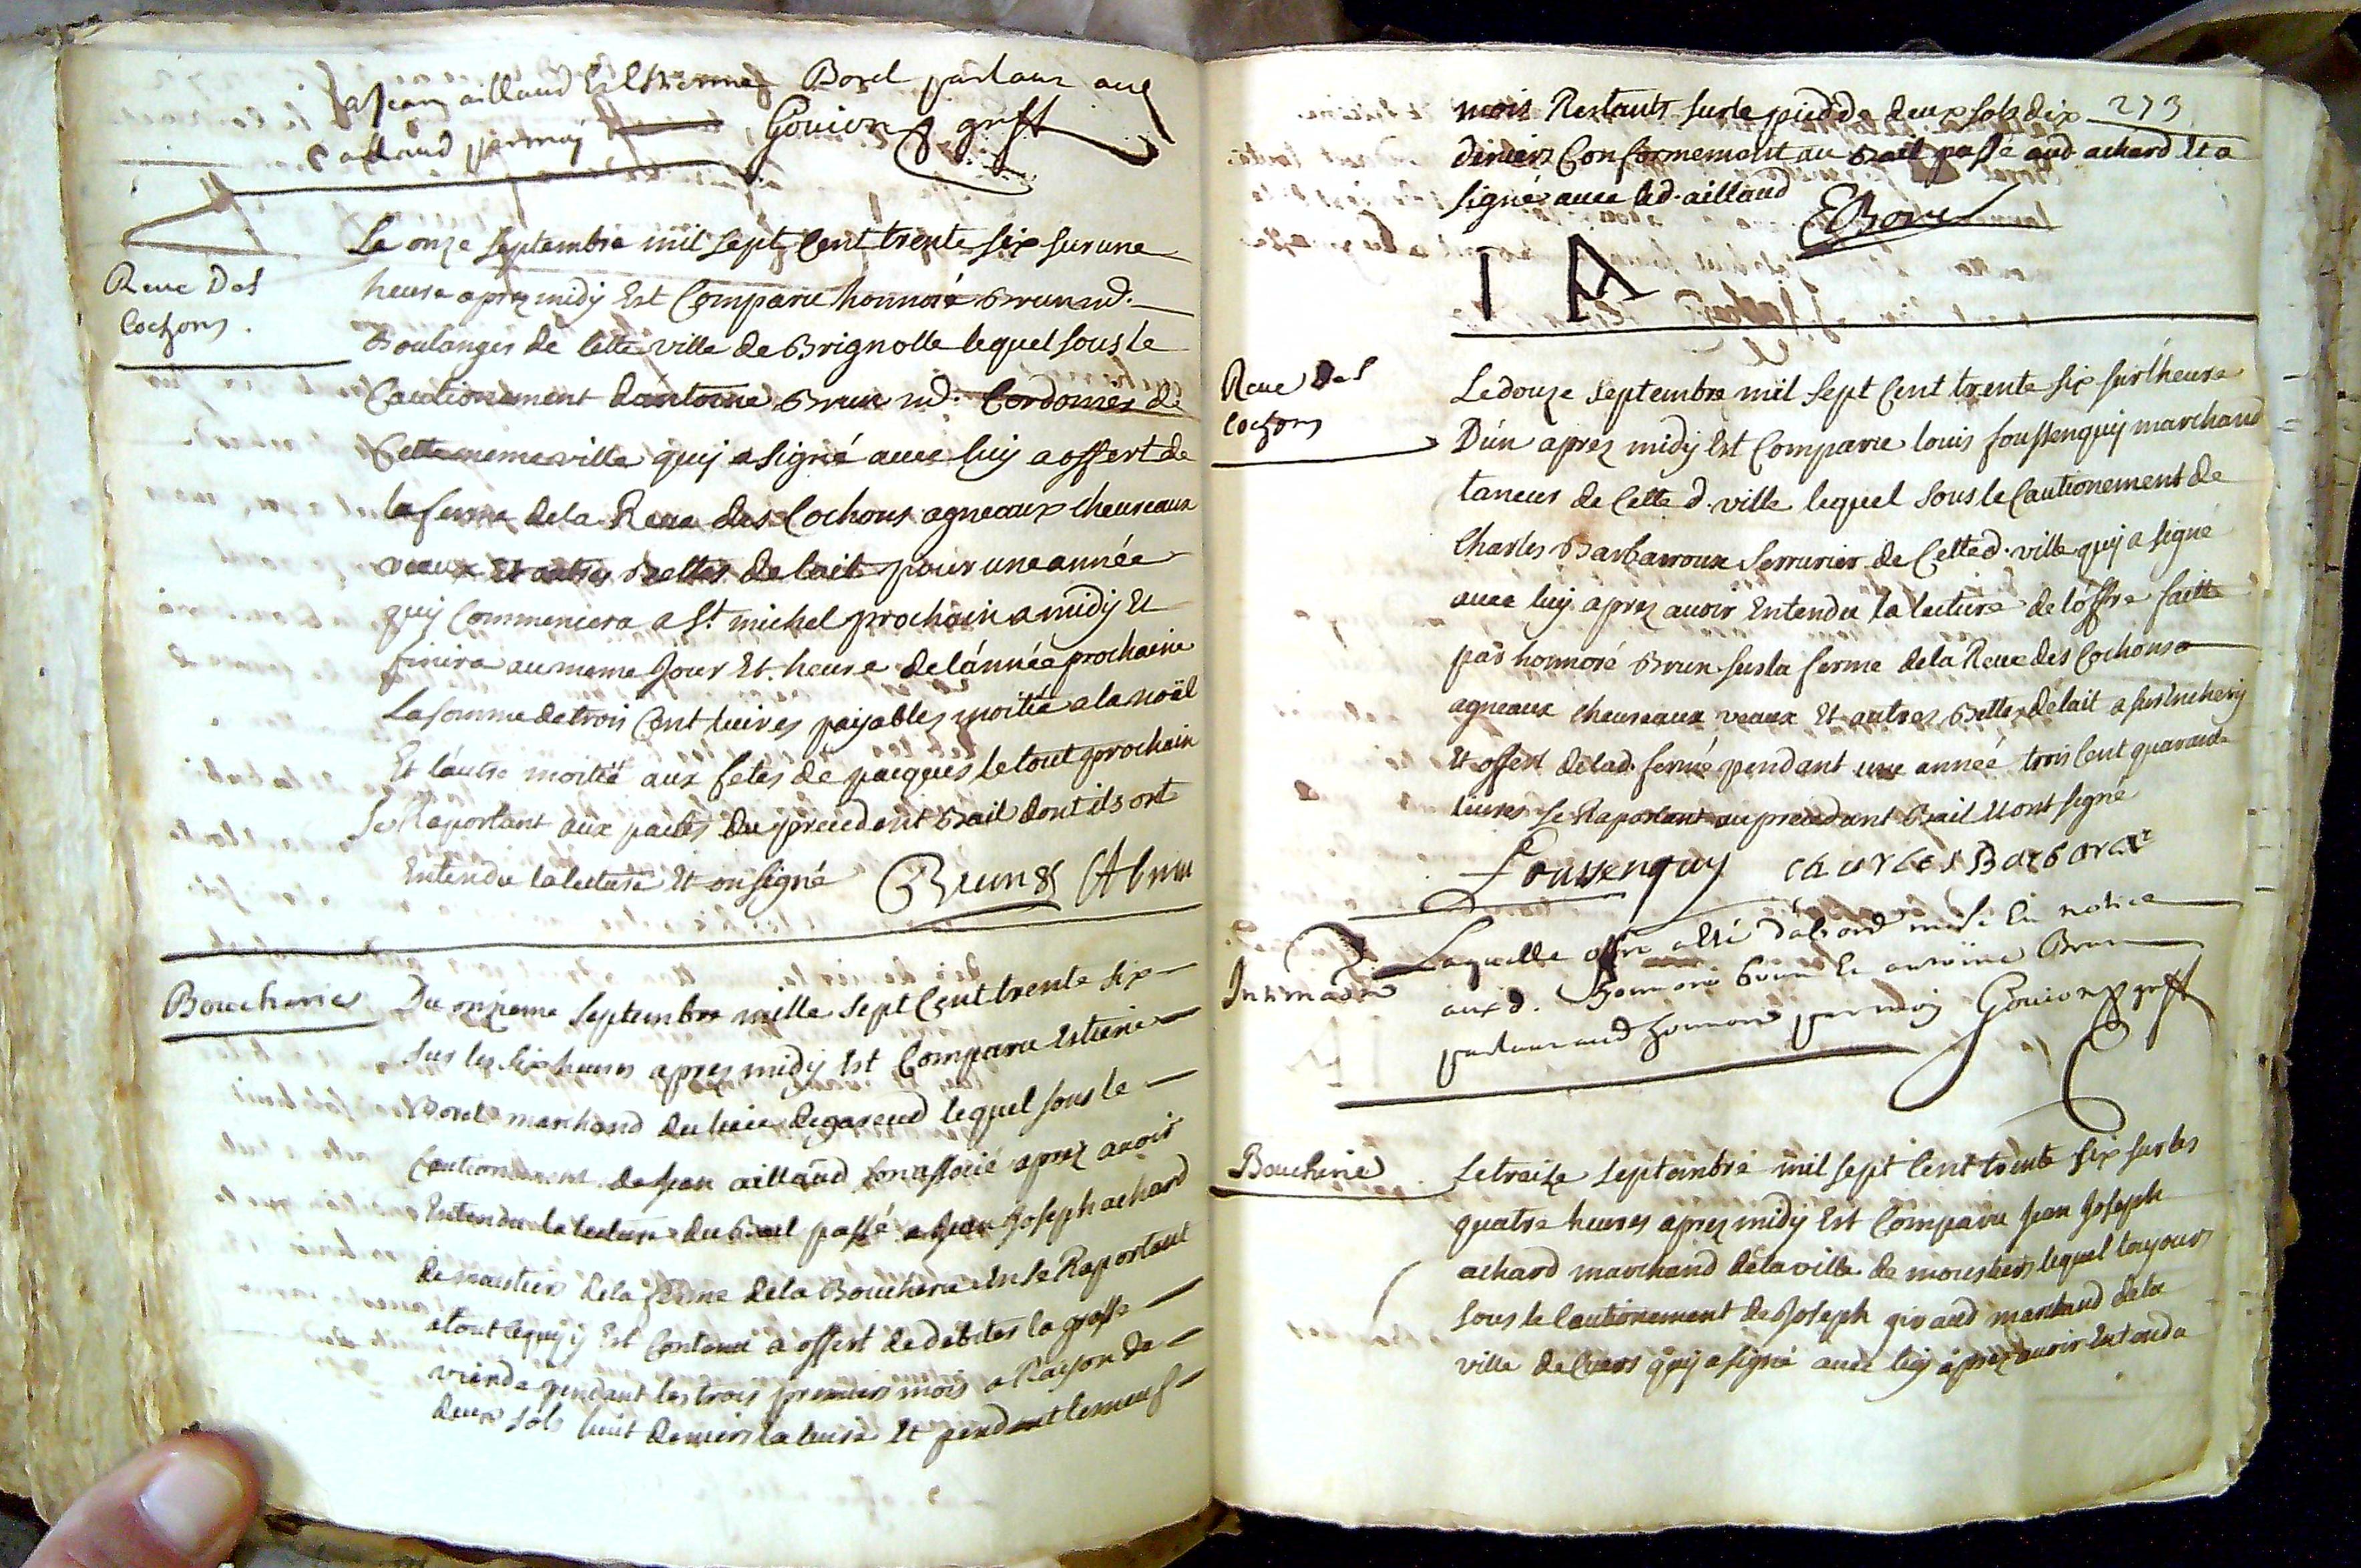 a Jean aillaud et Estienne Borel parlant aud
aillaud par moy Gouion greff
Reve Des
Cochons.
Le onze Septembre mil Sept Cent trente Six sur une
heure aprez midÿ Est Comparu honnoré Brun md.
Boulanger de Cette ville de Brignolle lequel sous le
Cautionement d'antoine Brun md. Cordonier de
Cette meme ville quÿ a signé avec luÿ a offert de
la ferme de la Reve des Cochons agneaux cheureaux
veaux Et autres Bettes de lait pour une année
quÿ Commencera a St. michel prochain a midÿ Et
finira au meme Jour Et heure de l'année prochaine
La somme de trois Cent livres paÿables moitié a la noël
Et l'autre moitié aux fetes de pacques le tout prochain
Se Raportant aux pactes du precedent Bail dont ils ont
Entendu la lecture Et on signé Brun ABrun
Boucherie
Du onzieme Septembre mille Sept Cent trente Six
Sur les Six heures aprez midÿ Est Comparu Estiene
Borel marchand du lieu de gareud lequel sous le
Cautionement de Jean aillaud son associé aprez avoir
Entendu la lecture du Bail passé a Jean Joseph achard
de moustiers de la ferme de la Boucherie En se Raportant
a tout ce quÿ ÿ Est Contenu a offert de debiter la grosse
viande pendant les trois premiers mois a Raison de
deux sols huit deniers la livre Et pendant les neuf
273
mois Restants sur le pied de deux sols dix
deniers Conformement au Bail passé aud achard Et a
signé avec led. aillaud EBorel
I A
Reve Des
Cochons
Le douze Septembre mil Sept Cent trente Six sur l'heure
D'un aprez midÿ Est Comparu louis foussenquÿ marchand
taneur de Cette d. ville lequel sous le Cautionement de
Charles Barbarroux Serrurier de Cette d. ville quÿ a signé
avec luÿ aprez avoir Entendu la lecture de l'offre faitte
par honnoré Brun sur la ferme de la Reve des Cochons
agneaux cheureaux veaux Et autres Bettes de lait a surencherÿ
Et offert de lad. ferme pendant une année trois Cent quarante
livres se Raportant au precedent Bail Et ont signé
Foussenquy charles Barbarou
Intimaon
Laquelle offre a esté d'abord mise En notice
aux d. honnoré Brun Et antoine Brun
parlant aud honnoré par moy Gouion greff
Boucherie
Le traize Septembre mil Sept Cent trente Six sur les
quatre heures aprez midÿ Est Comparu Jean Joseph
achard marchand de la ville de moustiers lequel toujours
sous le Cautionement de Joseph giraud marchand de la
ville de Cuers quÿ a signé avec luÿ aprez avoir Entendu